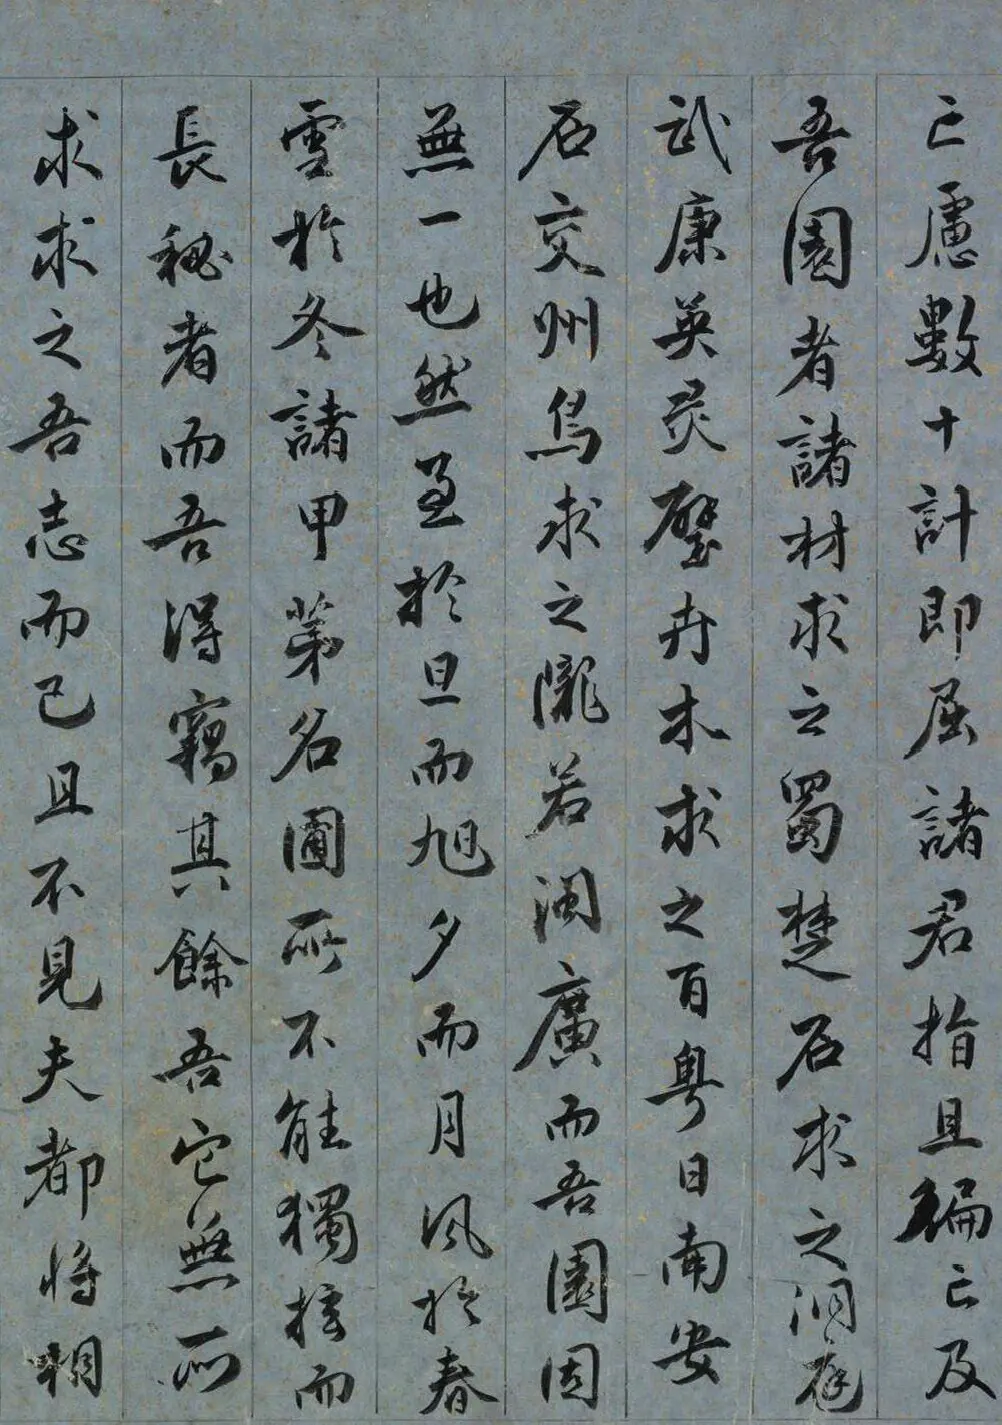 亡慮數十計即屈諸君指且編亡及
吾園者諸材求之蜀楚石求之洞庭
武康英靈璧卉木求之百粤日南安
石交州鳥求之隴若閩廣而吾園固
無一也然至於旦而旭夕而月風於春
雪於冬諸甲第名圃所不能獨擅而
長秘者而吾得竊其餘吾它無所
求求之吾志而已且不見夫都將相